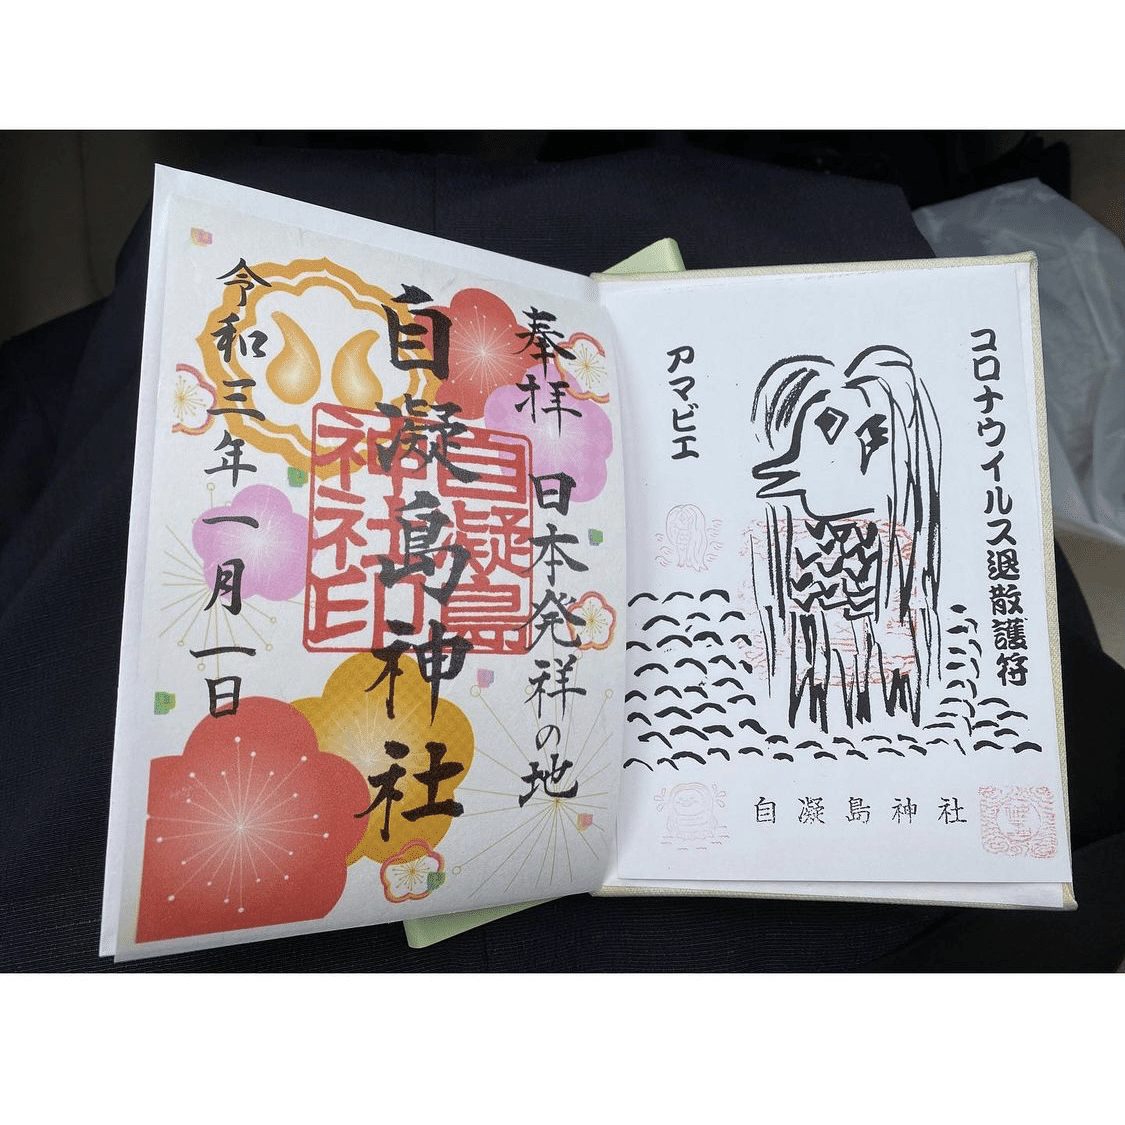 コロナウイルス退散護符
アマビエ
自凝島神社
奉拝 日本発祥の地
自凝島神社
令和三年一月一日
自凝島
神社印